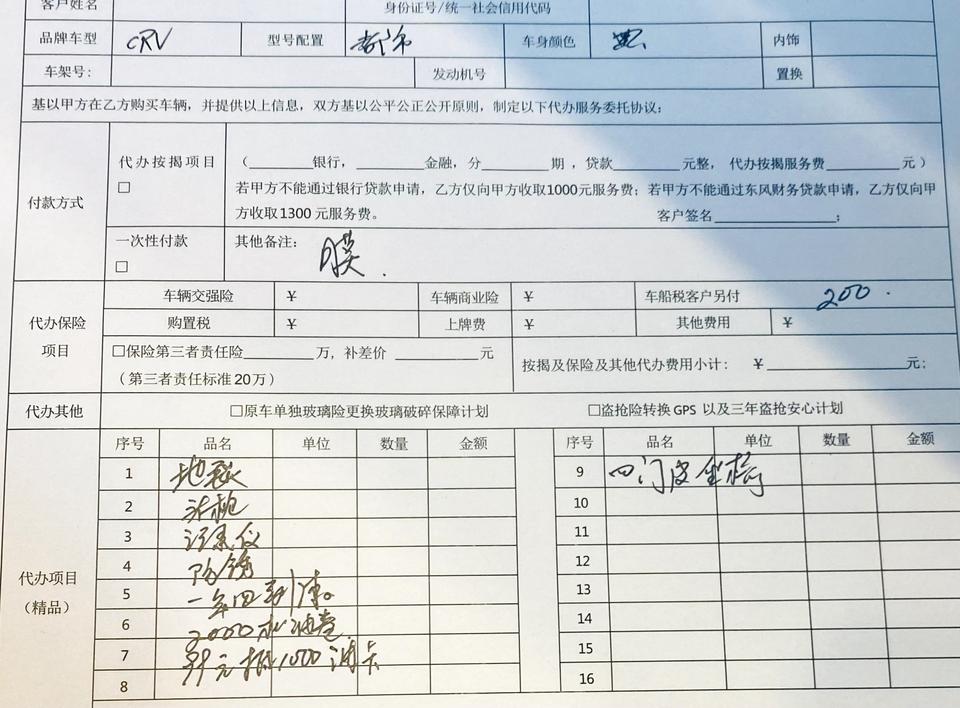 客户姓名 身份证号/统一社会信用代码
品牌车型 CRV 型号配置 都市 车身颜色 内饰
车架号: 发动机号 置换
基以甲方在乙方购买车辆，并提供以上信息，双方基以公平公正公开原则，制定以下代办服务委托协议；
付款方式
代办按揭项目 □
（______银行，______金融，分______期，贷款______元整，代办按揭服务费______元）
若甲方不能通过银行贷款申请，乙方仅向甲方收取1000元服务费；若甲方不能通过东风财务贷款申请，乙方仅向甲
方收取1300元服务费。 客户签名____________；
一次性付款 □
其他备注： 膜.
代办保险
项目
车辆交强险 ¥ 车辆商业险 ¥ 车船税客户另付 200.
购置税 ¥ 上牌费 ¥ 其他费用 ¥
□保险第三者责任险______万，补差价______元
（第三者责任标准20万）
按揭及保险及其他代办费用小计： ¥____________元;
代办其他 □原车单独玻璃险更换玻璃破碎保障计划 □盗抢险转换GPS 以及三年盗抢安心计划
代办项目
（精品）
序号 品名 单位 数量 金额 序号 品名 单位 数量 金额
1 地毯 9 四门皮坐椅
2 10
3 记录仪 11
4 防锈 12
5 13
6 2000 机油卷 14
7 抵1000油卡 15
8 16